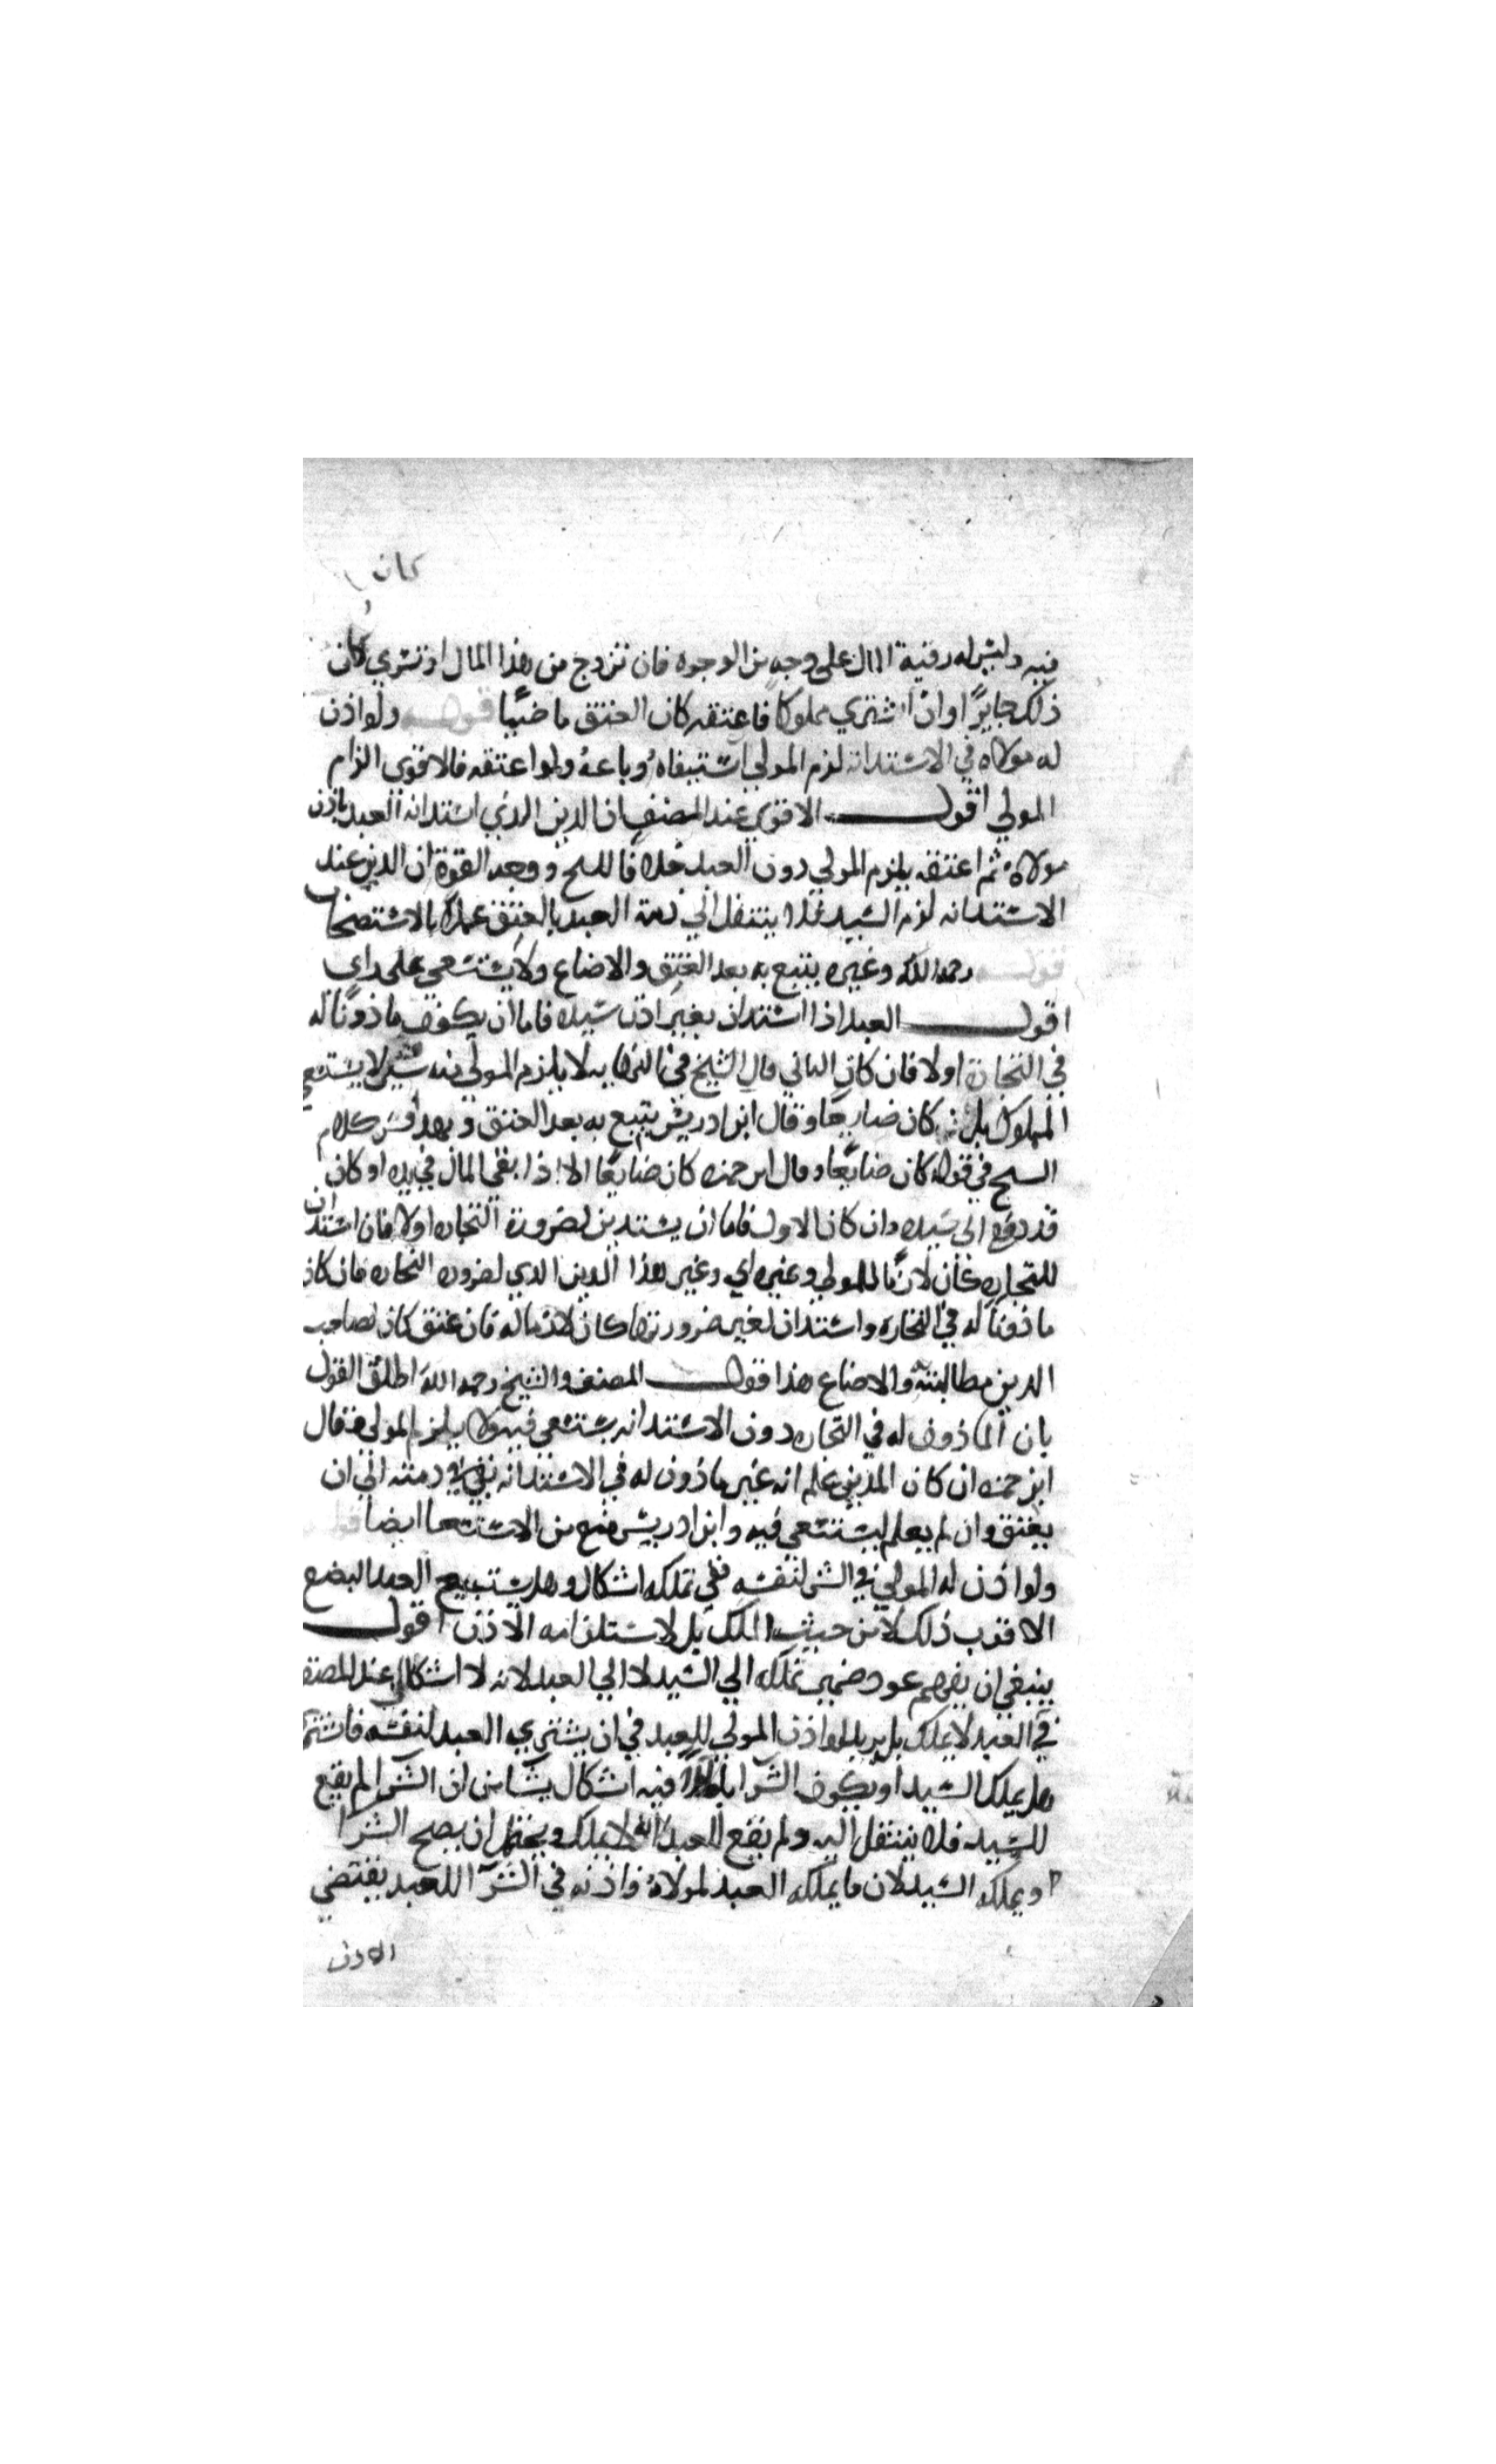 كان
فيه وليس له رقبة المال على وجه من الوجوه فان تزوج من هذا المال او تسري كان
ذلك جايزًا او ان اشتري مملوكا فاعتقه كان العتق ماضيًا قوله ولو اذن
له مولاه في الاستدانه لزم المولي ان استبقاه وباعهُ ولو اعتقه فالاقوي الزام
المولي اقول الاقوي عند المصنف ان الدين الذي استدانه العبد باذن
مولاه ثم اعتقه يلزم المولي دون العبد خلافا للسح ووجه القوة ان الدين عند
الاستدانه لزم السيد فلا ينتقل الي ذمة العبد بالعتق عملا بالاستصحاب
قوله رحمه الله وغيره يتبع به بعد العتق والا ضاع ولا يستسعي علي راي
اقول العبد اذا استدان بغير اذن سيده فاما ان يكون ماذونًا له
في التجارة اولا فان كان الثاني قال الشيخ في النهايه لا يلزم المولي منه شي ولا يستسعي
المملوك بل كان ضايعًا وقال ابن ادريس يتبع به بعد العتق وبهذا فسر كلام
السح في قوله كان ضايعًا وقال ابن حمزه كان ضايعًا الا اذا بقي المال في يده او كان
قد دفع الي سيده وان كان الاول فاما ان يستدين لضرورة التجاره اولا فان استدان
للتجاره كان لازما للمولي وغيره اي وغير هذا الدين الذي لضروره التجاره فان كان
ماذونًا له في التجاره واستدان لغير ضرورتها كان لازما له فان عتق كان لصاحب
الدين مطالبته والا ضاع هذا قول المصنف والشيخ رحمه الله اطلق القول
بان الماذون له في التجاره دون الاستدانه يستسعي فيه ولا يلزم المولي وقال
ابن حمزه ان كان المدين علم انه غير ماذون له في الاستدانه بقي في ذمته الي ان
يعتق وان لم يعلم استسعي فيه وابن ادريس منع من الاستسعا ايضا قوله
ولو اذن له المولي في الشرا لنفسه ففي تملكه اشكال وهل يستبيح العبد البضع
الاقرب ذلك لا من حيث الملك بل لاستلزامه الاذن اقول
ينبغي ان يفهم عود ضمير تملكه الي السيد لا الي العبد لانه لا اشكال عند المصنف
في ان العبد لا يملك بل يريد لو اذن المولي للعبد في ان يشتري العبد لنفسه فاشتري
هل يملك السيد او يكون الشرا باطلًا فيه اشكال ينشا من ان الشرا لم يقع
للسيد فلا ينتقل اليه ولم يقع للعبد لانه لا يملك ويحتمل ان يصح الشرا
ويملكه السيد لان ما يملكه العبد لمولاهُ واذنه في الشرا للعبد يقتضي
الاذن